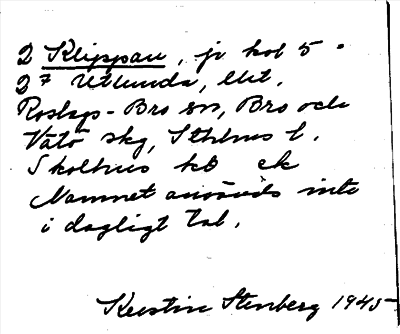 2 Klippan, jr kol 5
2⁷ Utlunda, llit.
Roslags-Bro sn, Bro och
Vätö skg, Sthlms l.
Skolhus kB ek
Namnet används inte
i dagligt tal.
Kerstin Stenberg 1945